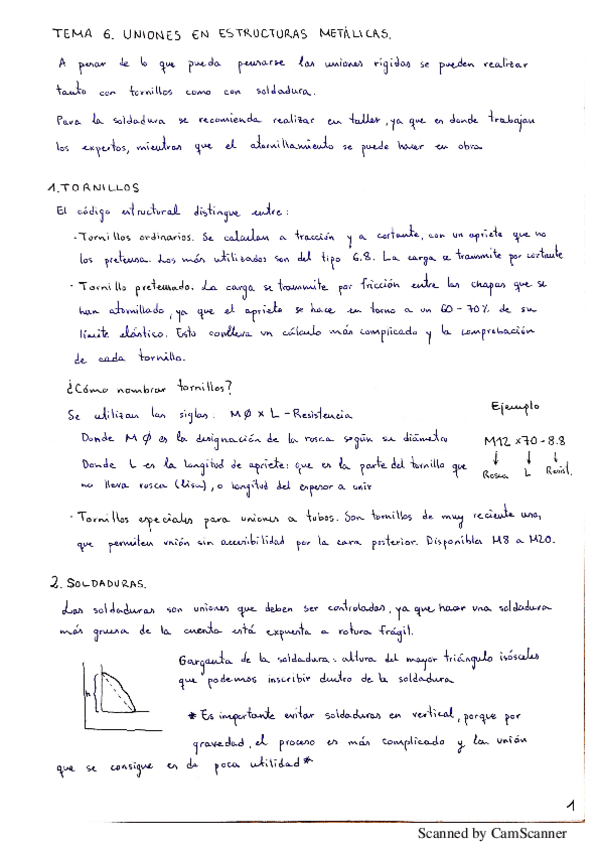 TEMA 6. UNIONES EN ESTRUCTURAS METÁLICAS.
A pesar de lo que pueda pensarse las uniones rígidas se pueden realizar
tanto con tornillos como con soldadura.
Para la soldadura se recomienda realizar en taller, ya que es donde trabajan
los expertos, mientras que el atornillamiento se puede hacer en obra
1. TORNILLOS
El código estructural distingue entre:
· Tornillos ordinarios. Se calculan a tracción y a cortante, con un apriete que no
los pretensa. Los más utilizados son del tipo 6.8. La carga se transmite por cortante
· Tornillo pretensado. La carga se transmite por fricción entre las chapas que se
han atornillado, ya que el apriete se hace en torno a un 60-70% de su
límite elástico. Esto conlleva un cálculo más complicado y la comprobación
de cada tornillo.
¿Cómo nombrar tornillos?
Se utilizan las siglas: M Ø x L - Resistencia
Donde M Ø es la designación de la rosca según su diámetro
Donde L es la longitud de apriete: que es la parte del tornillo que
no lleva rosca (lisa), o longitud del espesor a unir
Ejemplo
M12 x70-8.8
Rosca L Resist.
· Tornillos especiales para uniones a tubos. Son tornillos de muy reciente uso,
que permiten unión sin accesibilidad por la cara posterior. Disponibles M8 a M20.
2. SOLDADURAS.
Las soldaduras son uniones que deben ser controladas, ya que hacer una soldadura
más gruesa de la cuenta está expuesta a rotura frágil.
Garganta de la soldadura: altura del mayor triángulo isósceles
que podemos inscribir dentro de la soldadura
* Es importante evitar soldaduras en vertical, porque por
gravedad, el proceso es más complicado y la unión
que se consigue es de poca utilidad *
1
Scanned by CamScanner